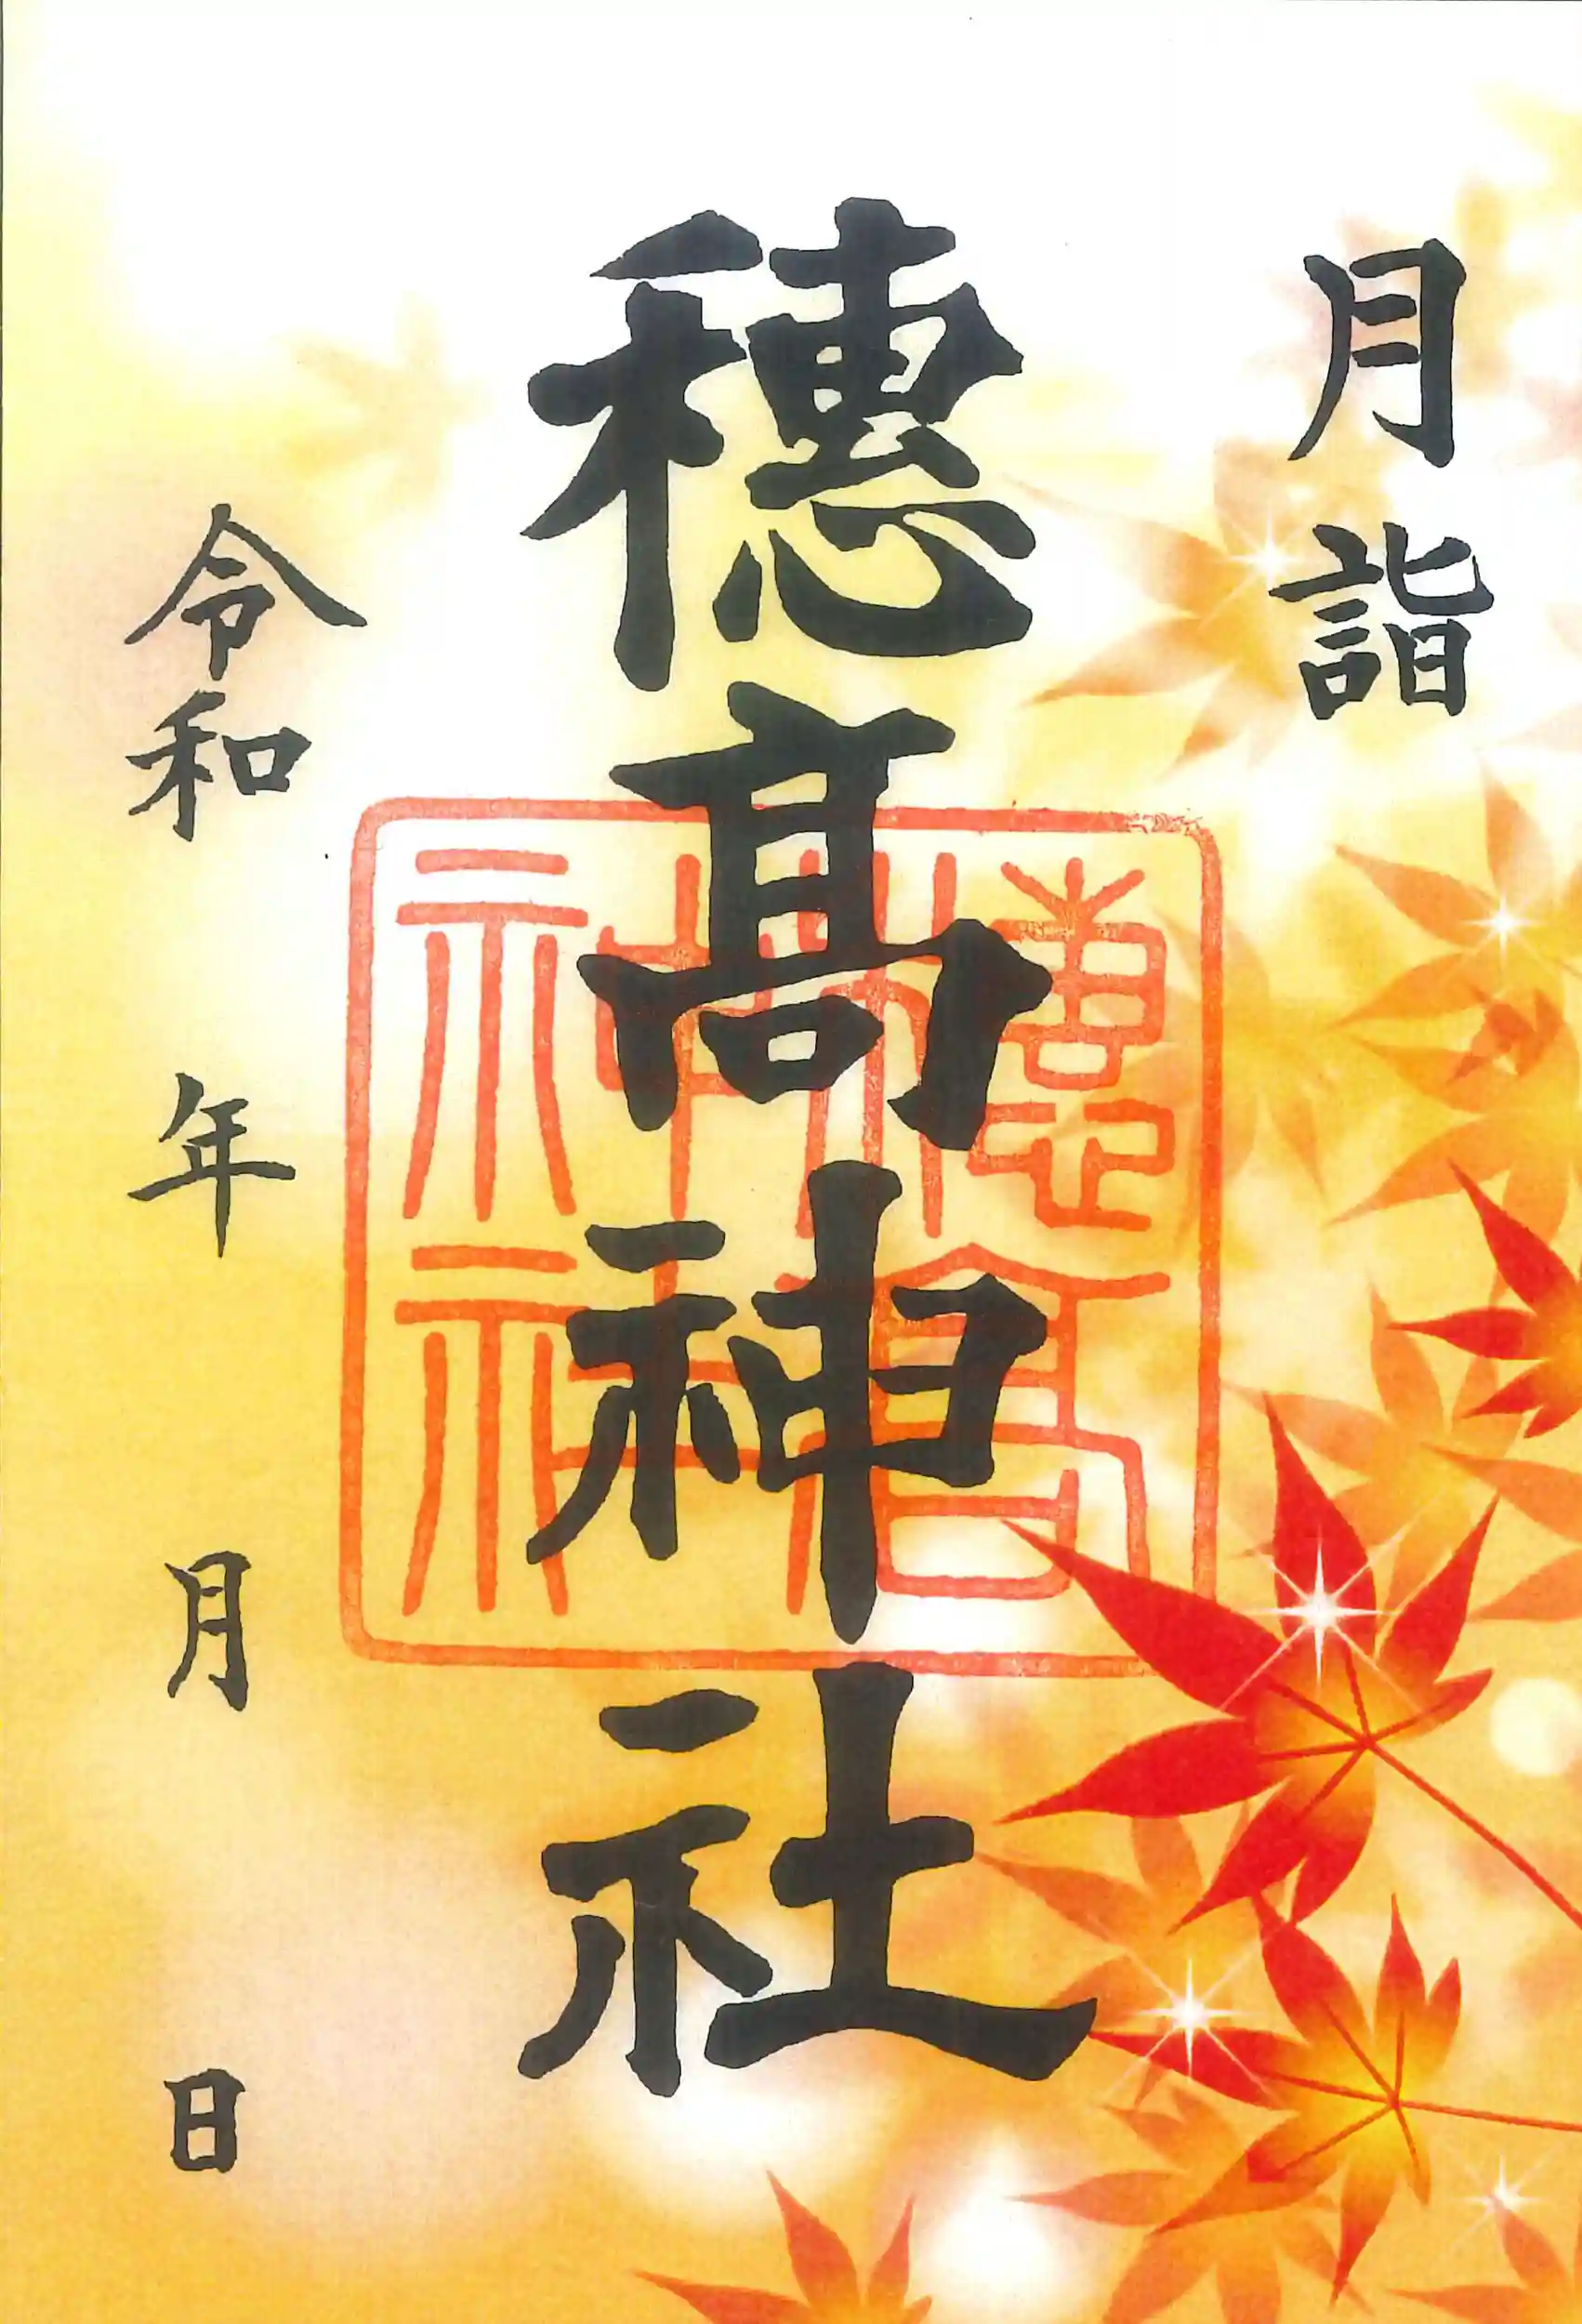 月詣
穂髙神社
穂髙神社
令和 年 月 日